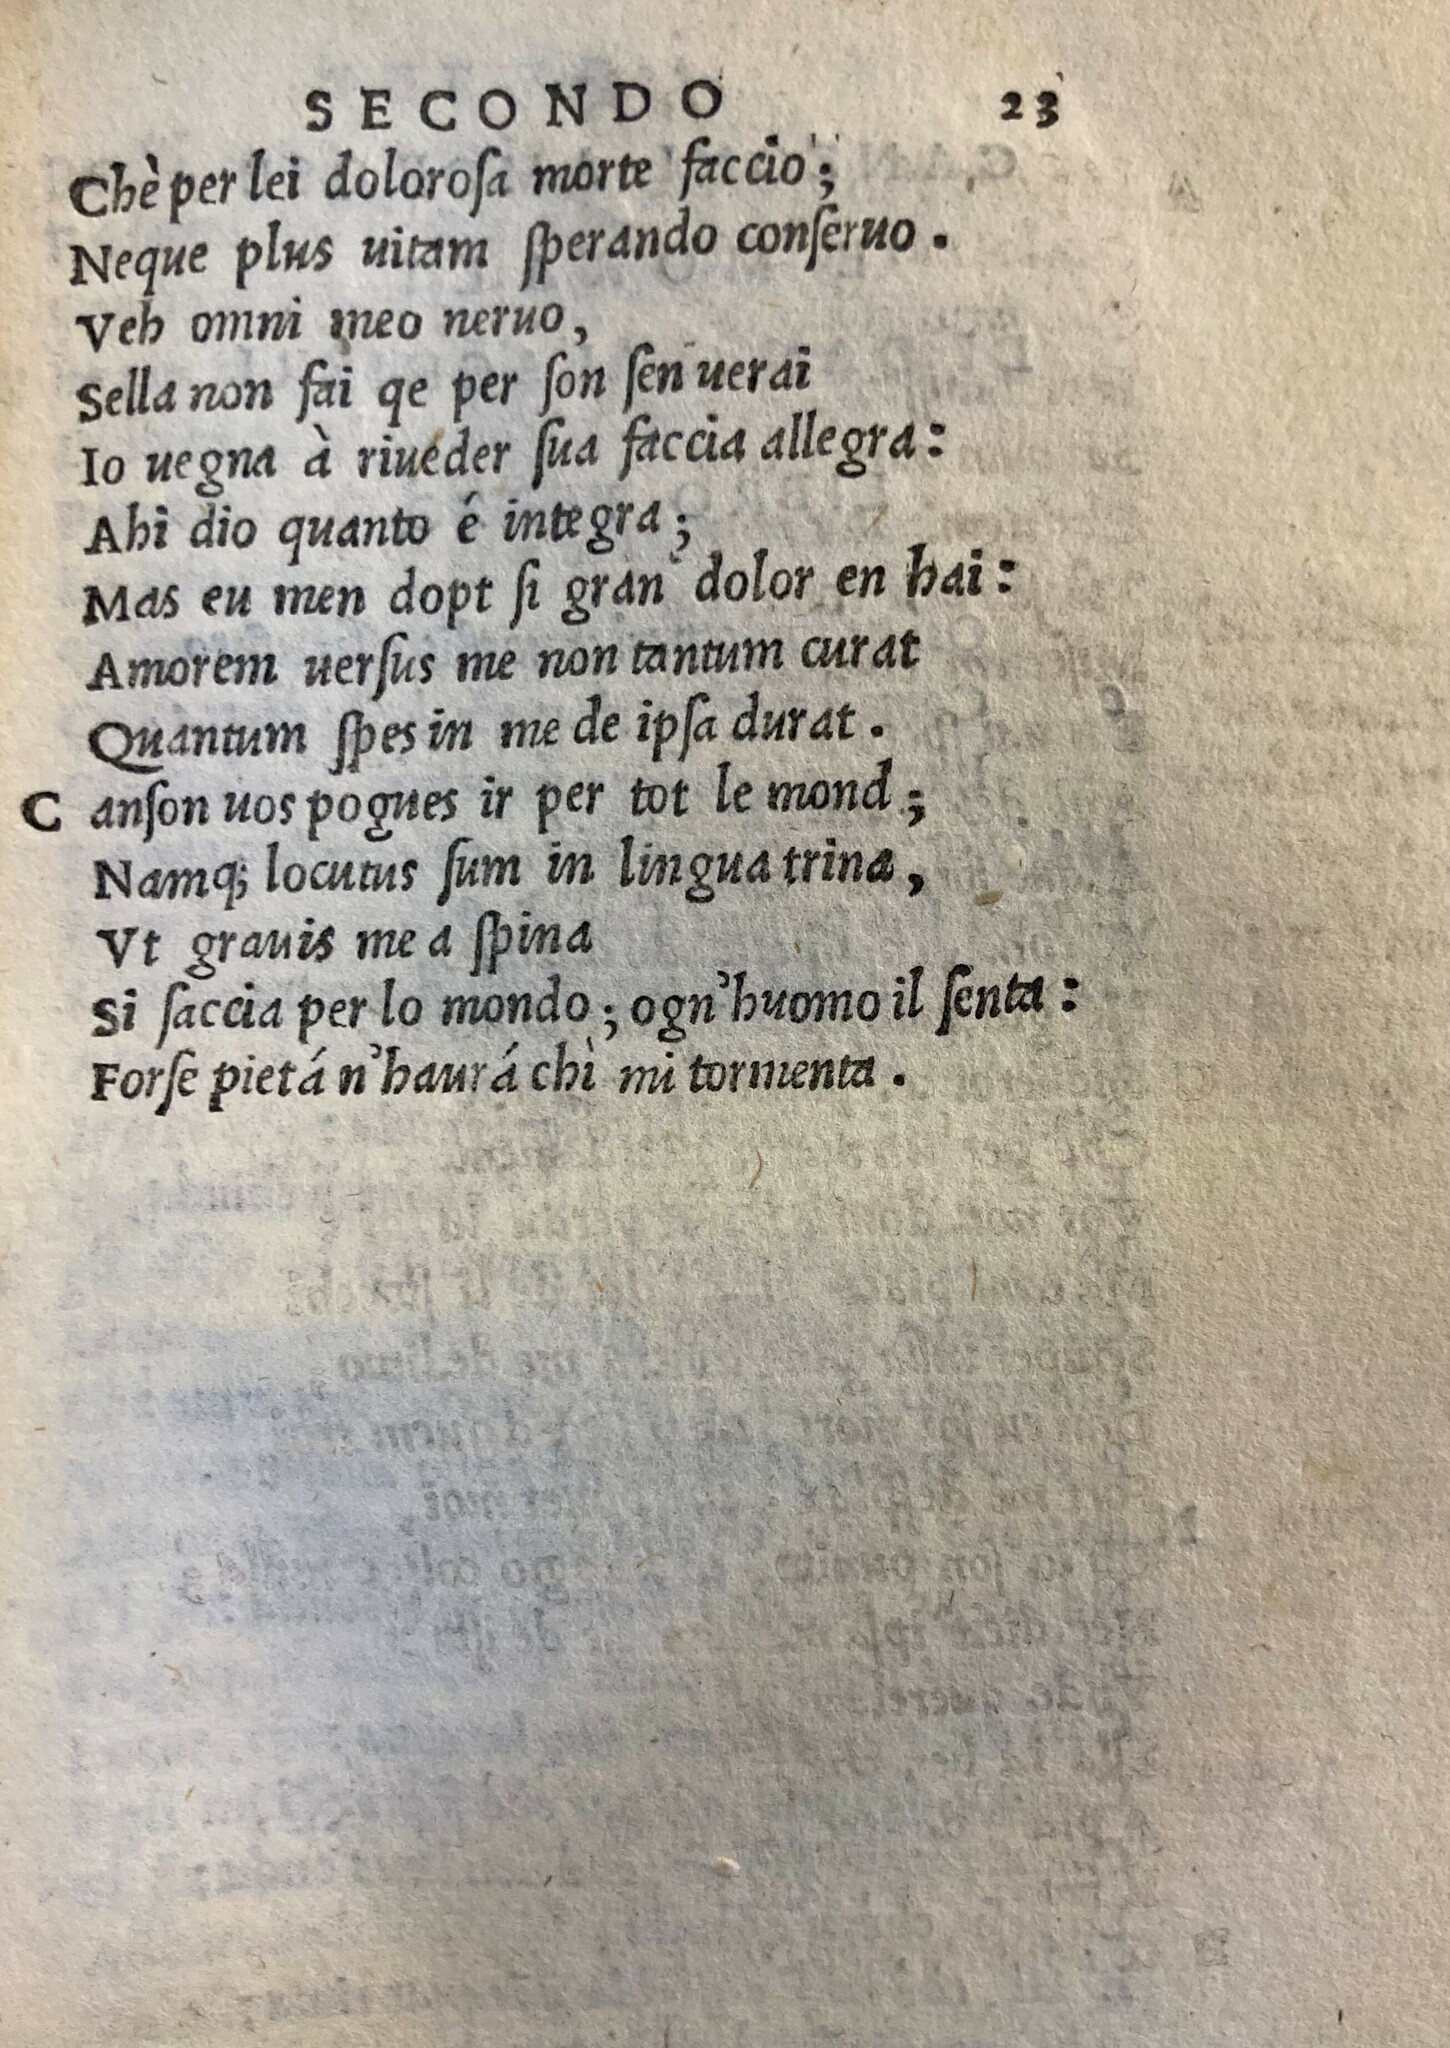 SECONDO 23
Chè per lei doloroſa morte faccio;
Neque plus uitam ſperando conſeruo.
Veh omni meo neruo,
Sella non fai qe per ſon ſen uerai
Io uegna à riueder ſua faccia allegra:
Ahi dio quanto é integra;
Mas eu men dopt ſi gran dolor en hai:
Amorem uerſus me non tantum curat
Quantum ſpes in me de ipſa durat.
Canſon uos pogues ir per tot le mond;
Namq; locutus ſum in lingua trina,
Vt grauis mea ſpina
Si ſaccia per lo mondo; ogn'huomo il ſenta:
Forſe pietá n'haurá chì mi tormenta.